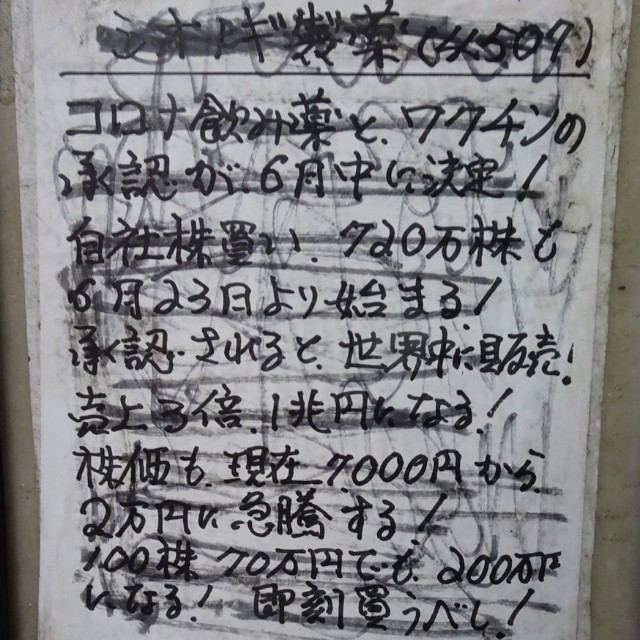 シオノギ製薬(4507)
コロナ飲み薬と、ワクチンの
承認が6月中に決定!
自社株買い、720万株で
6月23日より始まる!
承認されると、世界中に販売!
売上3倍、1兆円になる!
株価も、現在、7000円から、
2万円に急騰する!
100株70万円でも、200万円
になる! 即刻買うべし!